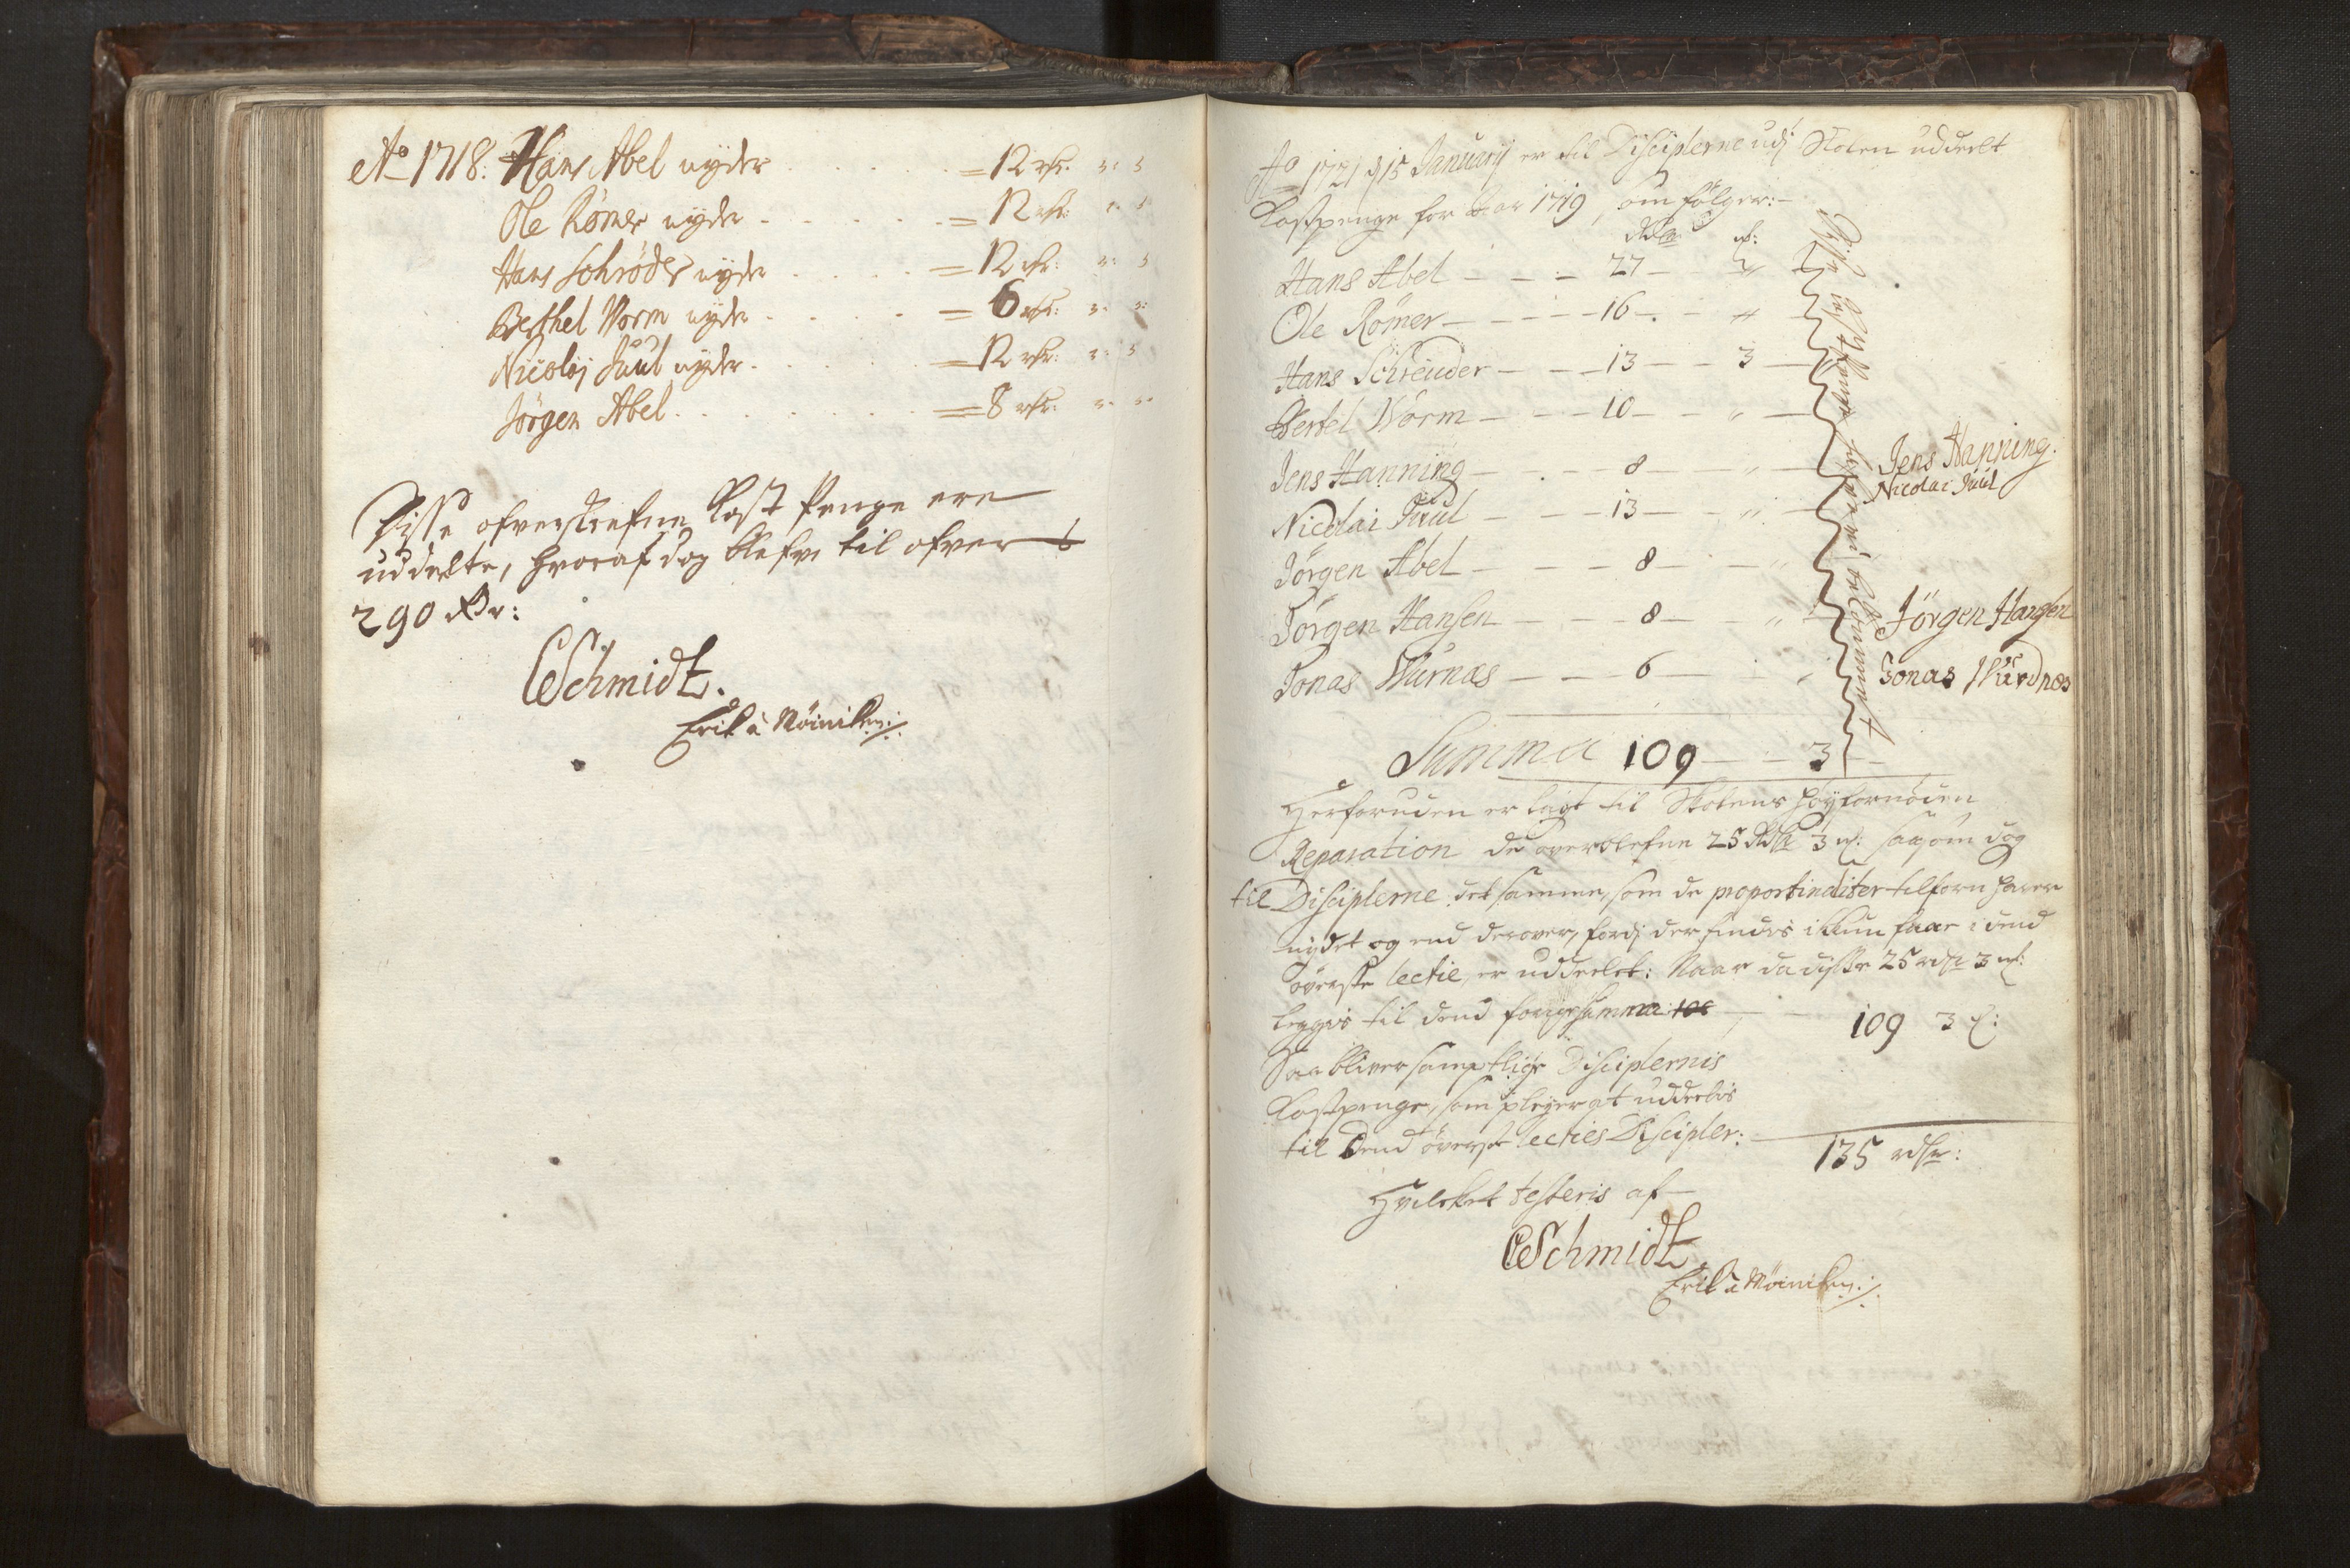 Ao 1718. Hans Abel nyder . . . . . = 12 rdr. " "
Ole Römer nyder . . . . . = 12 rdr: " "
Hans Schrøder nyder . . . . = 12 rdr: " "
Berthel Worm nyder . . . . = 6 rdr: " "
Nicolaj Juul nyder . . . . . = 12 rdr: " "
Jörgen Abel . . . . . . . = 8 rdr: " "
Disse ofverskrefne Kost Penge ere
uddelte, hvoraf dog blefve til ofvers
290 Rdr:
CSchmidt.
Erik à Møinichen
Ao 1721 d 15 Januarij er til Disciplerne udj Skolen uddeelt
Kostpenge for Aar 1719, som følger:
Rdlr mk:
Hans Abel - - - 27 - "
Ole Römer - - - - 16 - "
Hans Schreuder - - - 13 - - 3
Bertel Worm - - - 10 - - "
Jens Hanning - - - 8 - "
Nicolai Juul - - - 13 - - "
Jörgen Abel - - - 8 - - "
Jörgen Hansen - - - 8 - "
Jonas Wurnæs - - - 6 - "
Jens Hanning.
Nicolai Juul
Jörgen Hansen
Jonas Wurdnæs
Summa 109 - - 3
Herforuden er lagt til Skolens høyfornøden
Reparation de overblefne 25 Rdlr 3 mk: saasom dog
til Disciplerne det samme, som de proportinaliter tilforn haver
nydet og end derover, fordj der findes ikkun faae i dend
øverste lectie, er uddeelet: Naar da disse 25 rdlr 3 mk:
leggis til dend forige Summa 109 3 mk:
Saa bliver samptlige Disciplernis
Kostpenge, som plejer at uddeelis
til Dend øverste lecties Discipler: 135 rdlr:
Hvilcket testeris af
CSchmidt
Erik à Møinichen